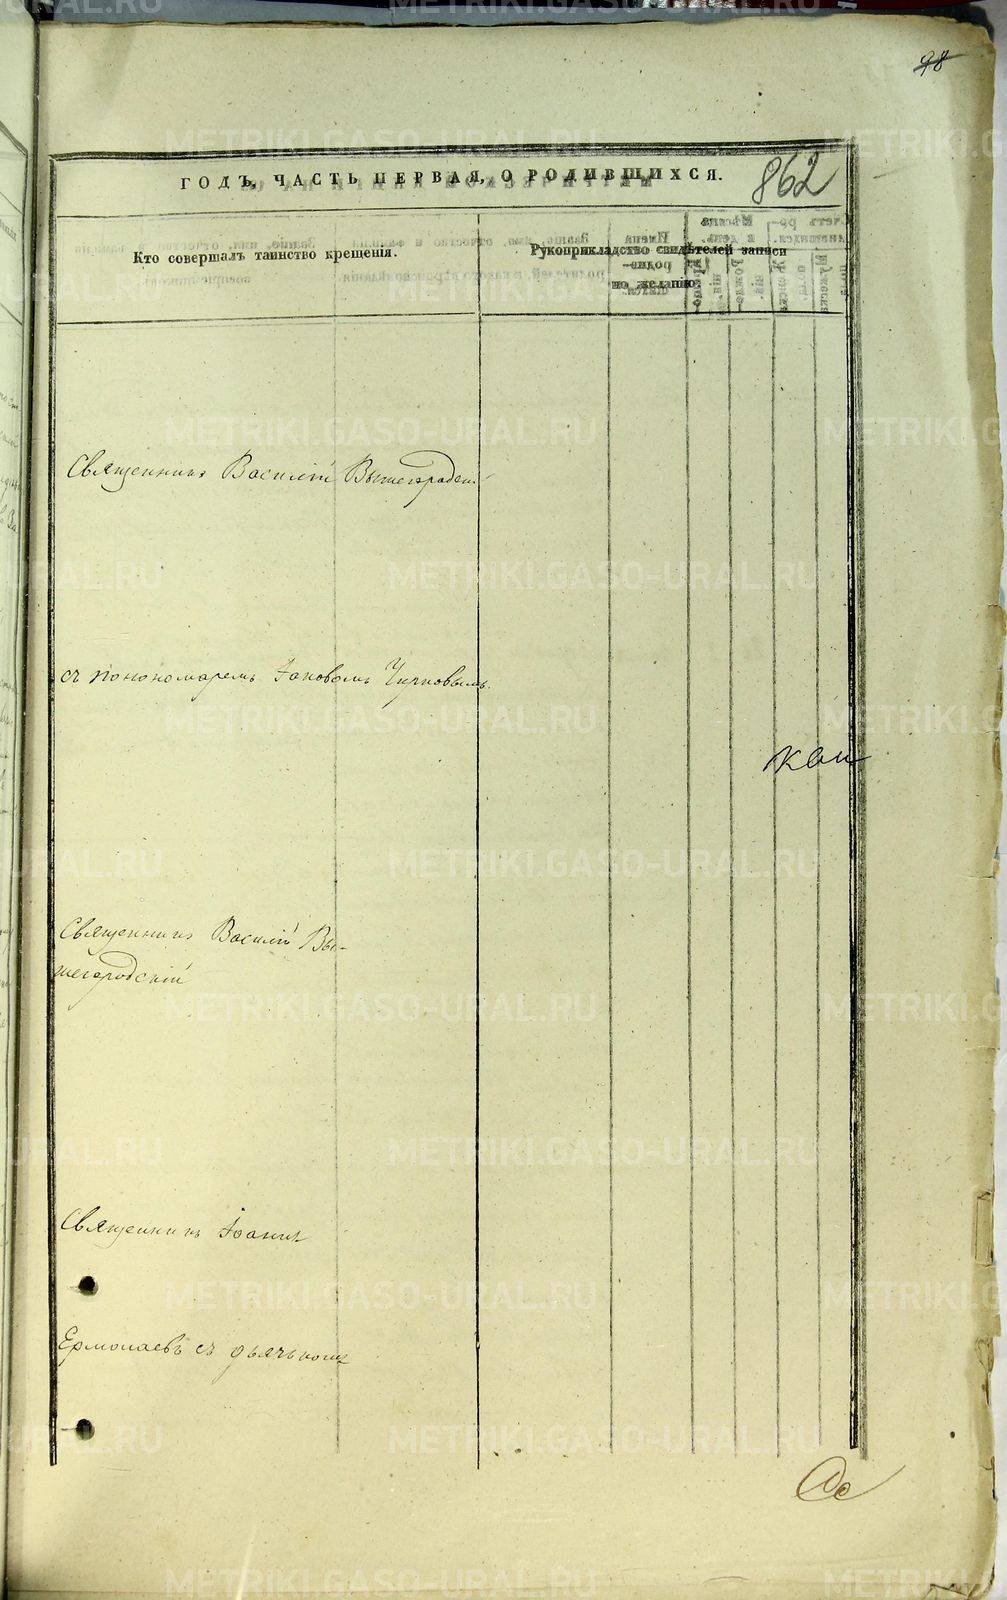 98
862
ГОДЪ, ЧАСТЬ ПЕРВАЯ, О РОДИВШИХСЯ.
Кто совершалъ таинство крещенія.
Рукоприкладство свидѣтелей записи
по желанію.
Священникъ Василій Вышегродскі
съ пономаремъ Іаковомъ
Священникъ Василій Вы-
шегородскій
Священникъ Іоаннъ
Ермолаевъ съ дьячькомъ
METRIKI.GASO-URAL.RU